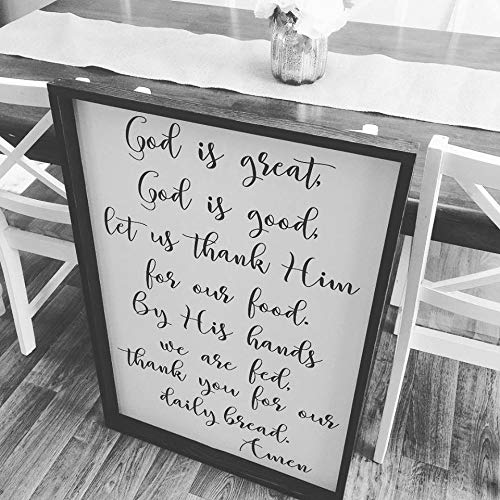 God is great,
God is good,
let us thank Him
for our food.
By His hands
we are fed,
thank you for our
daily bread.
Amen